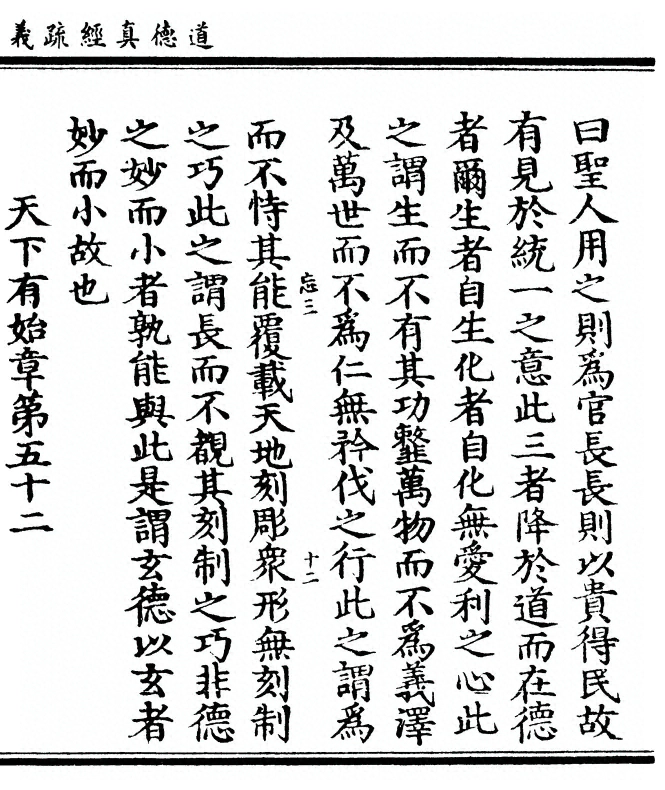 道德真經疏義
曰聖人用之則爲官長長則以貴得民故
有見於統一之意此三者降於道而在德
者爾生者自生化者自化無愛利之心此
之謂生而不有其功𩐋萬物而不爲義澤
及萬世而不爲仁無矜伐之行此之謂爲
忘三
十二
而不恃其能覆載天地刻彫衆形無刻制
之巧此之謂長而不覩其刻制之巧非德
之妙而小者孰能與此是謂玄德以玄者
妙而小故也
天下有始章第五十二